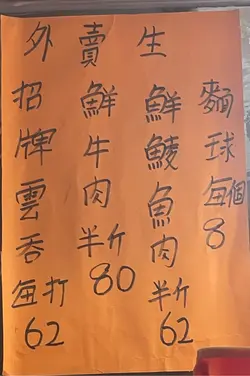 外賣生
招牌雲吞每打62
鮮牛肉半斤80
鮮鯪魚肉半斤62
麵球每個8